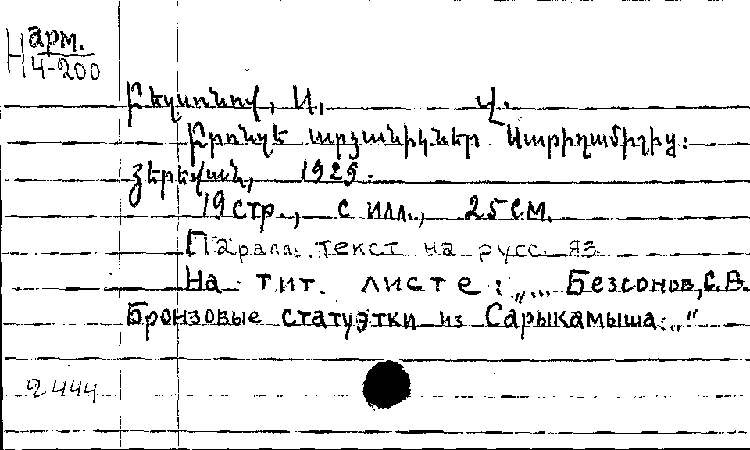 Н арм.
4-200
Բեզսոնով, Ս. Վ.
Բրոնզե արձանիկներ Սարիղամիշից:
Յերեվան, 1929.
19 стр., с илл., 25 см.
Паралл. текст на русс. яз
На тит. листе: „... Безсонов, С. В.
Бронзовые статуэтки из Сарыкамыша..."
2444